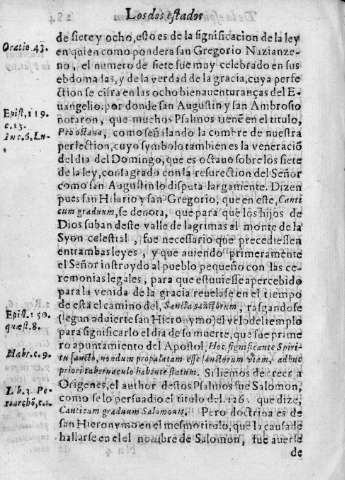 Los dos estados
de siete y ocho, esto es de la significacion de la ley
Oratio 43.
en quien como pondera san Gregorio Nazianze-
no, el numero de siete fue muy celebrado en sus
ebdomadas, y de la verdad de la gracia, cuya perfe
ction se cifra en las ocho bienauenturanças del E-
uangelio. por donde san Augustin y san Ambrosio
Epist. 119.
c. 13.
In c. 6. Lu-
notaron, que muchos Psalmos tienē en el titulo,
Pro octaua, como señalando la combre de nuestra
perfection, cuyo symbolo tambien es la veneraciō
del dia del Domingo, que es octauo sobre los siete
de la ley, consagrado con la resurection del Señor
como san Augustin lo disputa largamente. Dizen
pues san Hilario y san Gregorio, que en este, Canti
cum graduum, se denota, que para q̄ los hijos de
Dios suban deste valle de lagrimas al monte de la
Syon celestial, fue necessario que precediessen
entrambas leyes, y que auiendo primeramente
el Señor instruydo al pueblo pequeño con las ce-
remonias legales, para que estuuiesse apercebido
para la venida de la gracia reuelase en el tiempo
de esta el camino del, Sancta sanctorum, rasgandose
Epist. 150.
quæst. 8.
(segun aduierte san Hieronymo) el velo del templo
para significarlo el dia de su muerte, que fue prime
ro apuntamiento del Apostol, Hoc significante Spiri-
Hæbr. c. 9.
tu sancto, nondum propalatam esse sanctorum viam, adhuc
priori tabernaculo habente statum. Si hemos de creer a
Origenes, el author destos Psalmos fue Salomon,
Lib. 1. Pe-
riarchō, c. 2.
como se lo persuadio el titulo del 126. que dize,
Canticum graduum Salomonis. Pero doctrina es de
san Hieronymo en el mesmo titulo, que la causa de
hallarse en el el nombre de Salomon, fue auerle
de